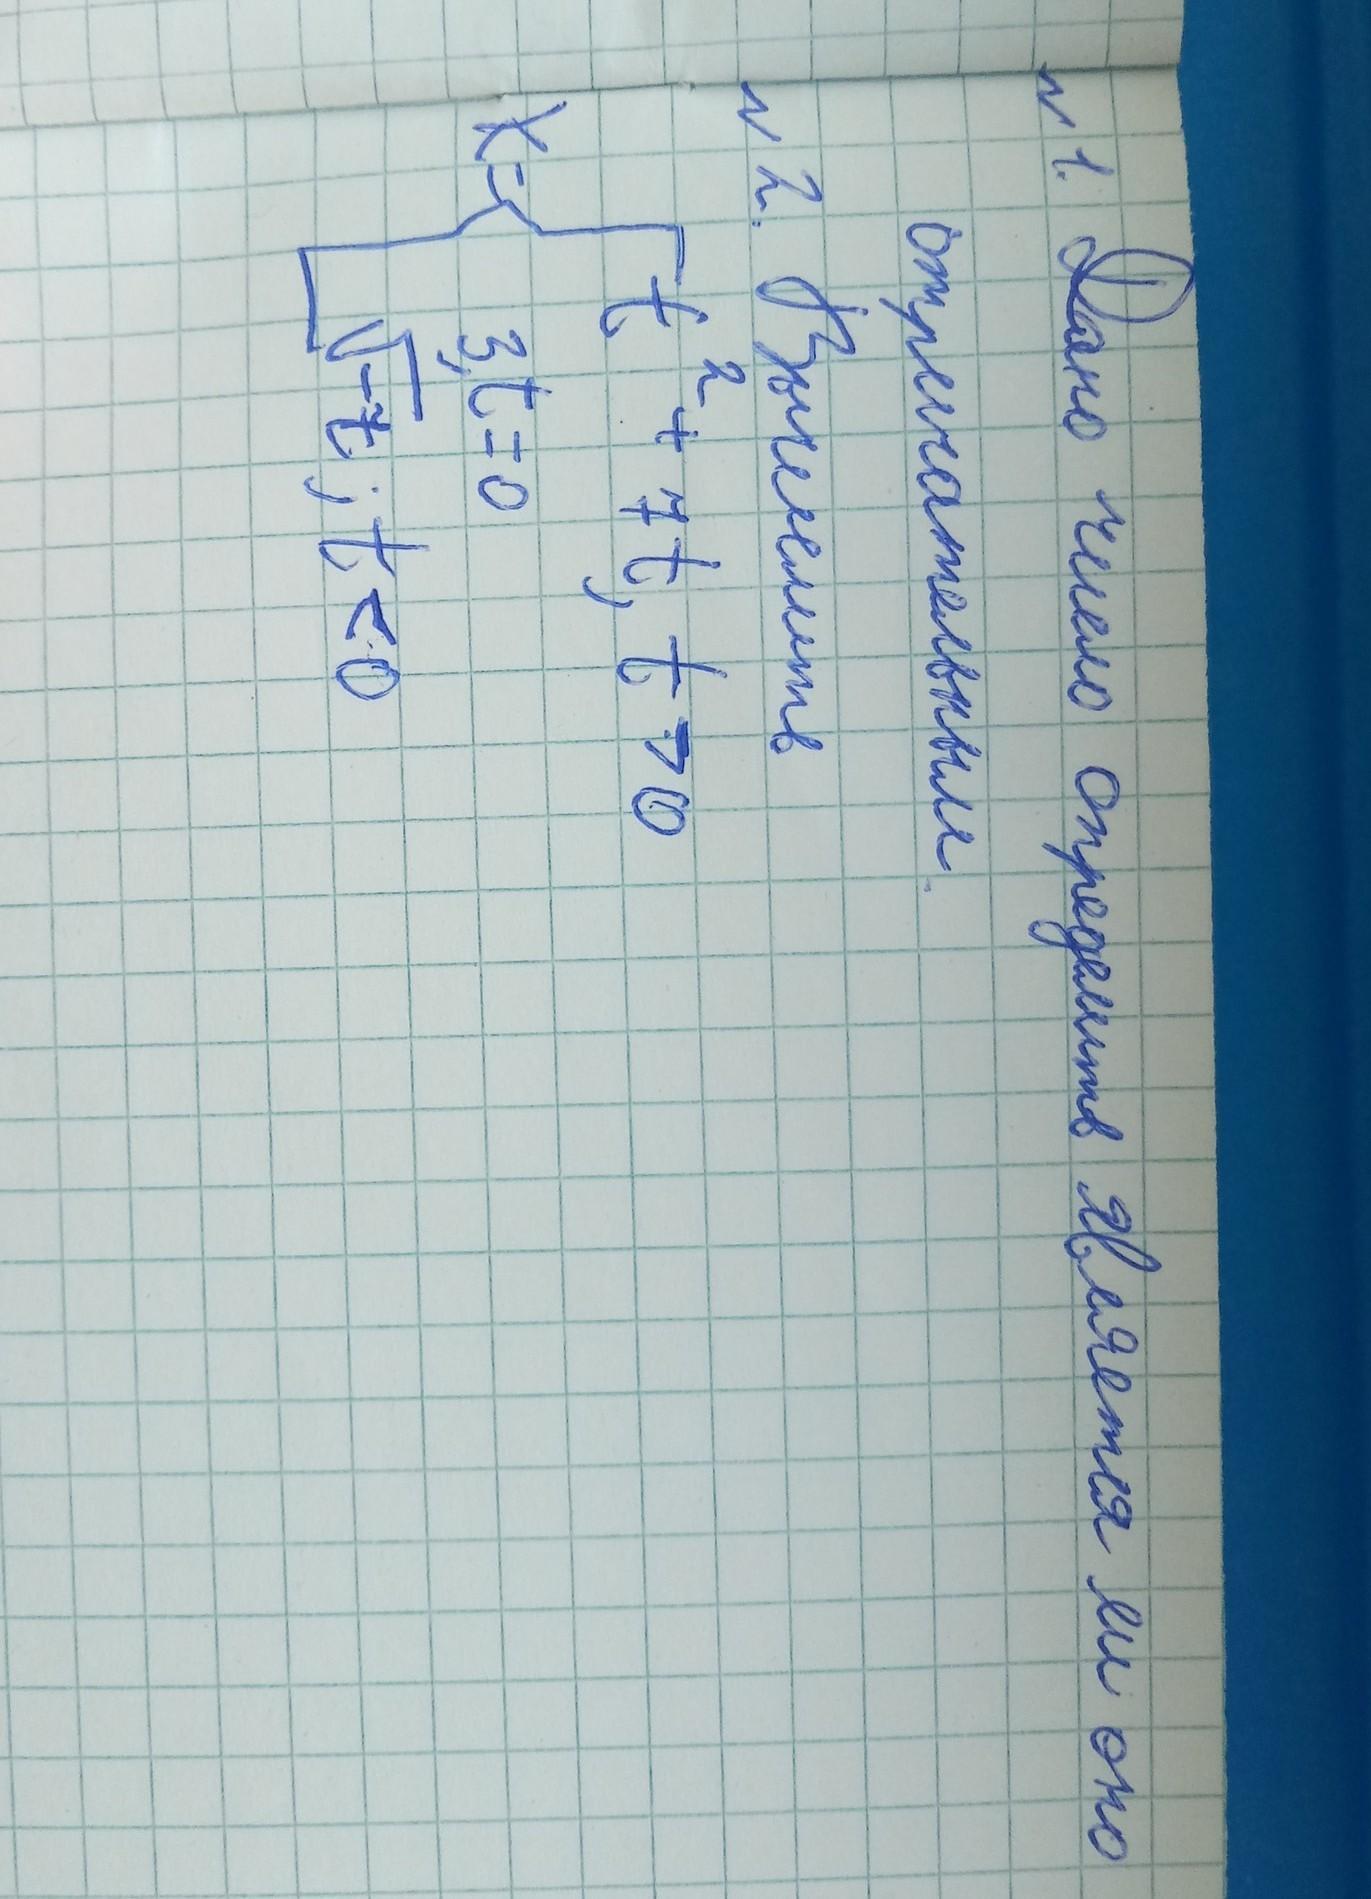 N 1. Дано число определить является ли оно
отрицательным.
N 2. Вычислить
t² + 7t, t > 0
X = { 3, t = 0
√-t, t < 0